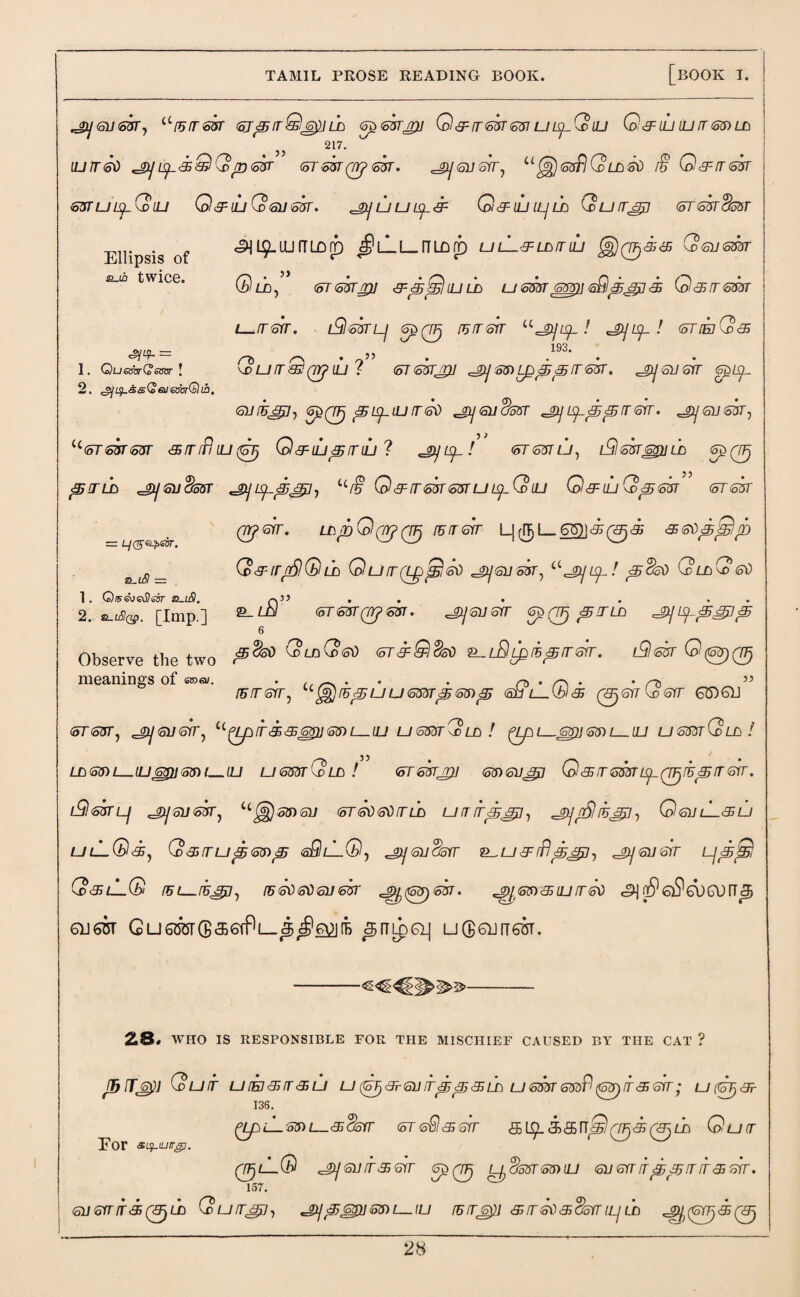 TAMIL PROSE READING BOOK. [BOOK I.
அவன், “நான் எதாகிலும் ஒன்று சொன்னபடியே செய்யாமை
217.
யால் அடிக்கிறேன்” என்றான். அவள், “இனிமேல் நீ சொன்
னபடியே செய்வேன். அப்படிச் செய்யும் போது என்னை
Ellipsis of உம் twice.
அடியாமற் றிட்டாமற் பட்சமாய் இருக்க வேண்
டும்,” என்று சத்தியம் பண்ணுவித்துக் கொண்
டாள். பின்பு ஒரு நாள் “அடி! அடி! எங்கே
193.
அடி =
1. பெண்ணே!
2. அடிக்கவேண்டும்.
போகிறாய்?” என்று அழைத்தான். அவள் ஒடி
வந்து, ஒரு தடியால் அவனை அடித்தாள். அவன்,
“என்ன காரியஞ் செய்தாய்? அடி!” என்ப, பின்னும் ஒரு
தரம் அவனை அடித்து, “நீ சொன்னபடியே செய்தேன்” என்
= புருஷன்.
றாள். மற்றொரு நாள் புருடனுக்குக் கலத்திற்
சோறிடும் பொழுதில் அவன், “அடி! தலை மேல்
உமி =
1. நெல்லின் உமி.
2. உமிழ். [Imp.]
உமி” என்றான். அவள் ஒரு தரம் அடித்துத்
6
தலை மேலே எச்சிலை உமிழ்ந்தாள். பின் னொரு
Observe the two meanings of வை.
நாள், “இந்தப் பணத்தை விட்டுக் குள்ளே வை”
என, அவள், “மூழாக்கனுடைய பணமே! மூடனுடைய பணமே!
மடையனுடைய பணமே!” என்று வைது கொண்டிருந்தாள்.
பின்பு அவன், “இவை எல்லாம் பார்த்து, அறிந்து, வெட்கப்
பட்டுக், கோபத்தை விட்டு, அவளை உபசரித்து, அவள் புத்தி
கேட்டு நடந்து, நல்லவன் ஆனான். ஆகையால் அறிவில்லாத
வன் பெண்டுகளிடத்திலுந் தாழ்வு படுவான்.
28. WHO IS RESPONSIBLE FOR THE MISCHIEF CAUSED BY THE CAT?
நாலு பேர் பங்காகப் பஞ்சுவர்த்தகம் பண்ணினார்கள்; பஞ்சு
136.
மூட்டைகளை எலிகள் கடிக்காதிருக்கும் பொ
For கடியாது.
ருட்டு அவர்கள் ஒரு பூனையை வளர்த்தார்கள்.
157.
வளர்க்கும் போது, அத்தனுடைய நாலு கால்களையும் ஆளுக்கு
28